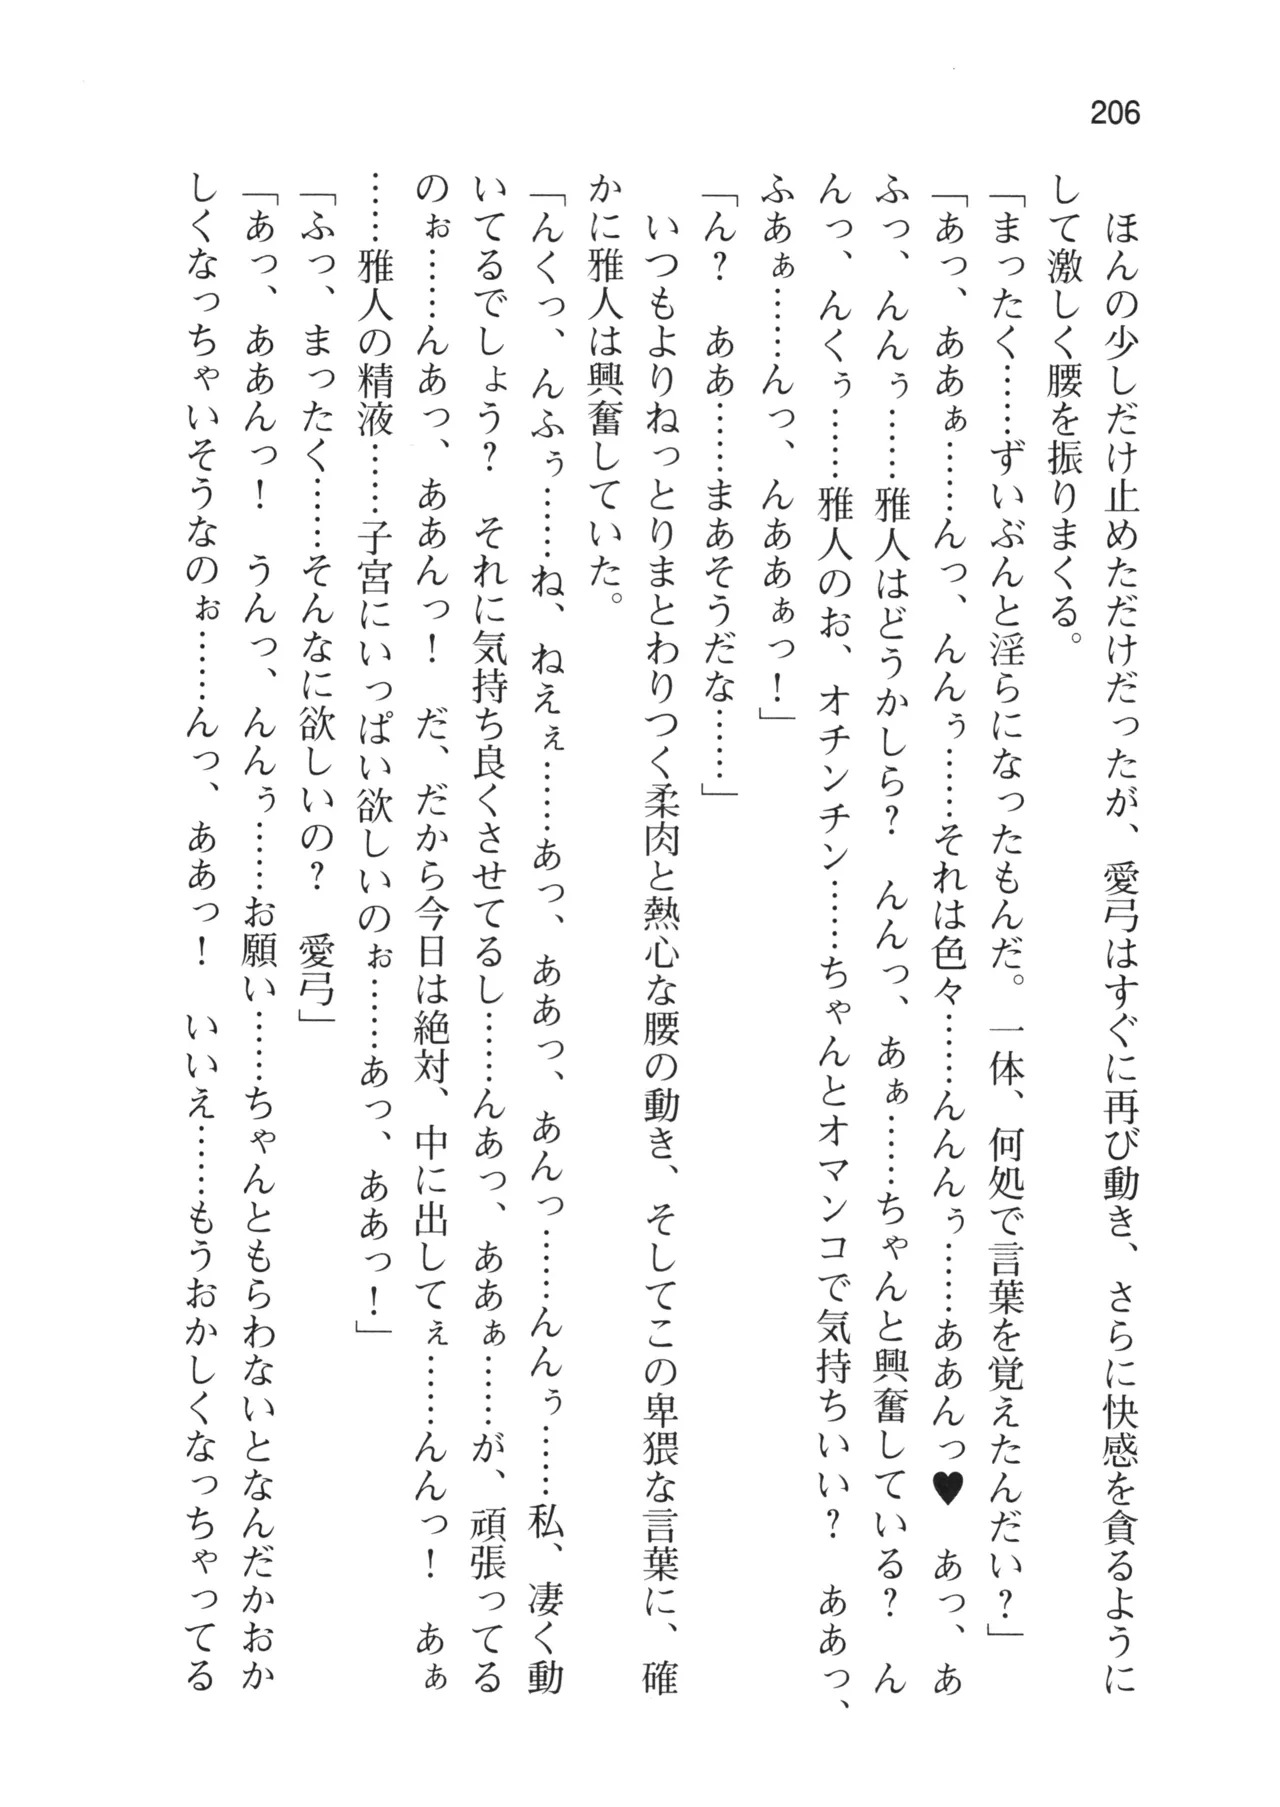 206
ほんの少しだけ止めただけだったが、愛弓はすぐに再び動き、さらに快感を貪るように
して激しく腰を振りまくる。
「まったく……ずいぶんと淫らになったもんだ。一体、何処で言葉を覚えたんだい？」
「あっ、ああぁ……んっ、んんぅ……それは色々……んんんぅ……ああんっ♥　あっ、あ
ふっ、んんぅ……雅人はどうかしら？　んんっ、あぁ……ちゃんと興奮している？　ん
んっ、んくぅ……雅人のお、オチンチン……ちゃんとオマンコで気持ちいい？　ああっ、
ふあぁ……んっ、んああぁっ！」
「ん？　ああ……まあそうだな……」
いつもよりねっとりまとわりつく柔肉と熱心な腰の動き、そしてこの卑猥な言葉に、確
かに雅人は興奮していた。
「んくっ、んふぅ……ね、ねえぇ……あっ、ああっ、あんっ……んんぅ……私、凄く動
いてるでしょう？　それに気持ち良くさせてるし……んあっ、ああぁ……が、頑張ってる
のぉ……んあっ、ああんっ！　だ、だから今日は絶対、中に出してぇ……んんっ！　あぁ
……雅人の精液……子宮にいっぱい欲しいのぉ……あっ、ああっ！」
「ふっ、まったく……そんなに欲しいの？　愛弓」
「あっ、ああんっ！　うんっ、んんぅ……お願い……ちゃんともらわないとなんだかおか
しくなっちゃいそうなのぉ……んっ、ああっ！　いいえ……もうおかしくなっちゃってる